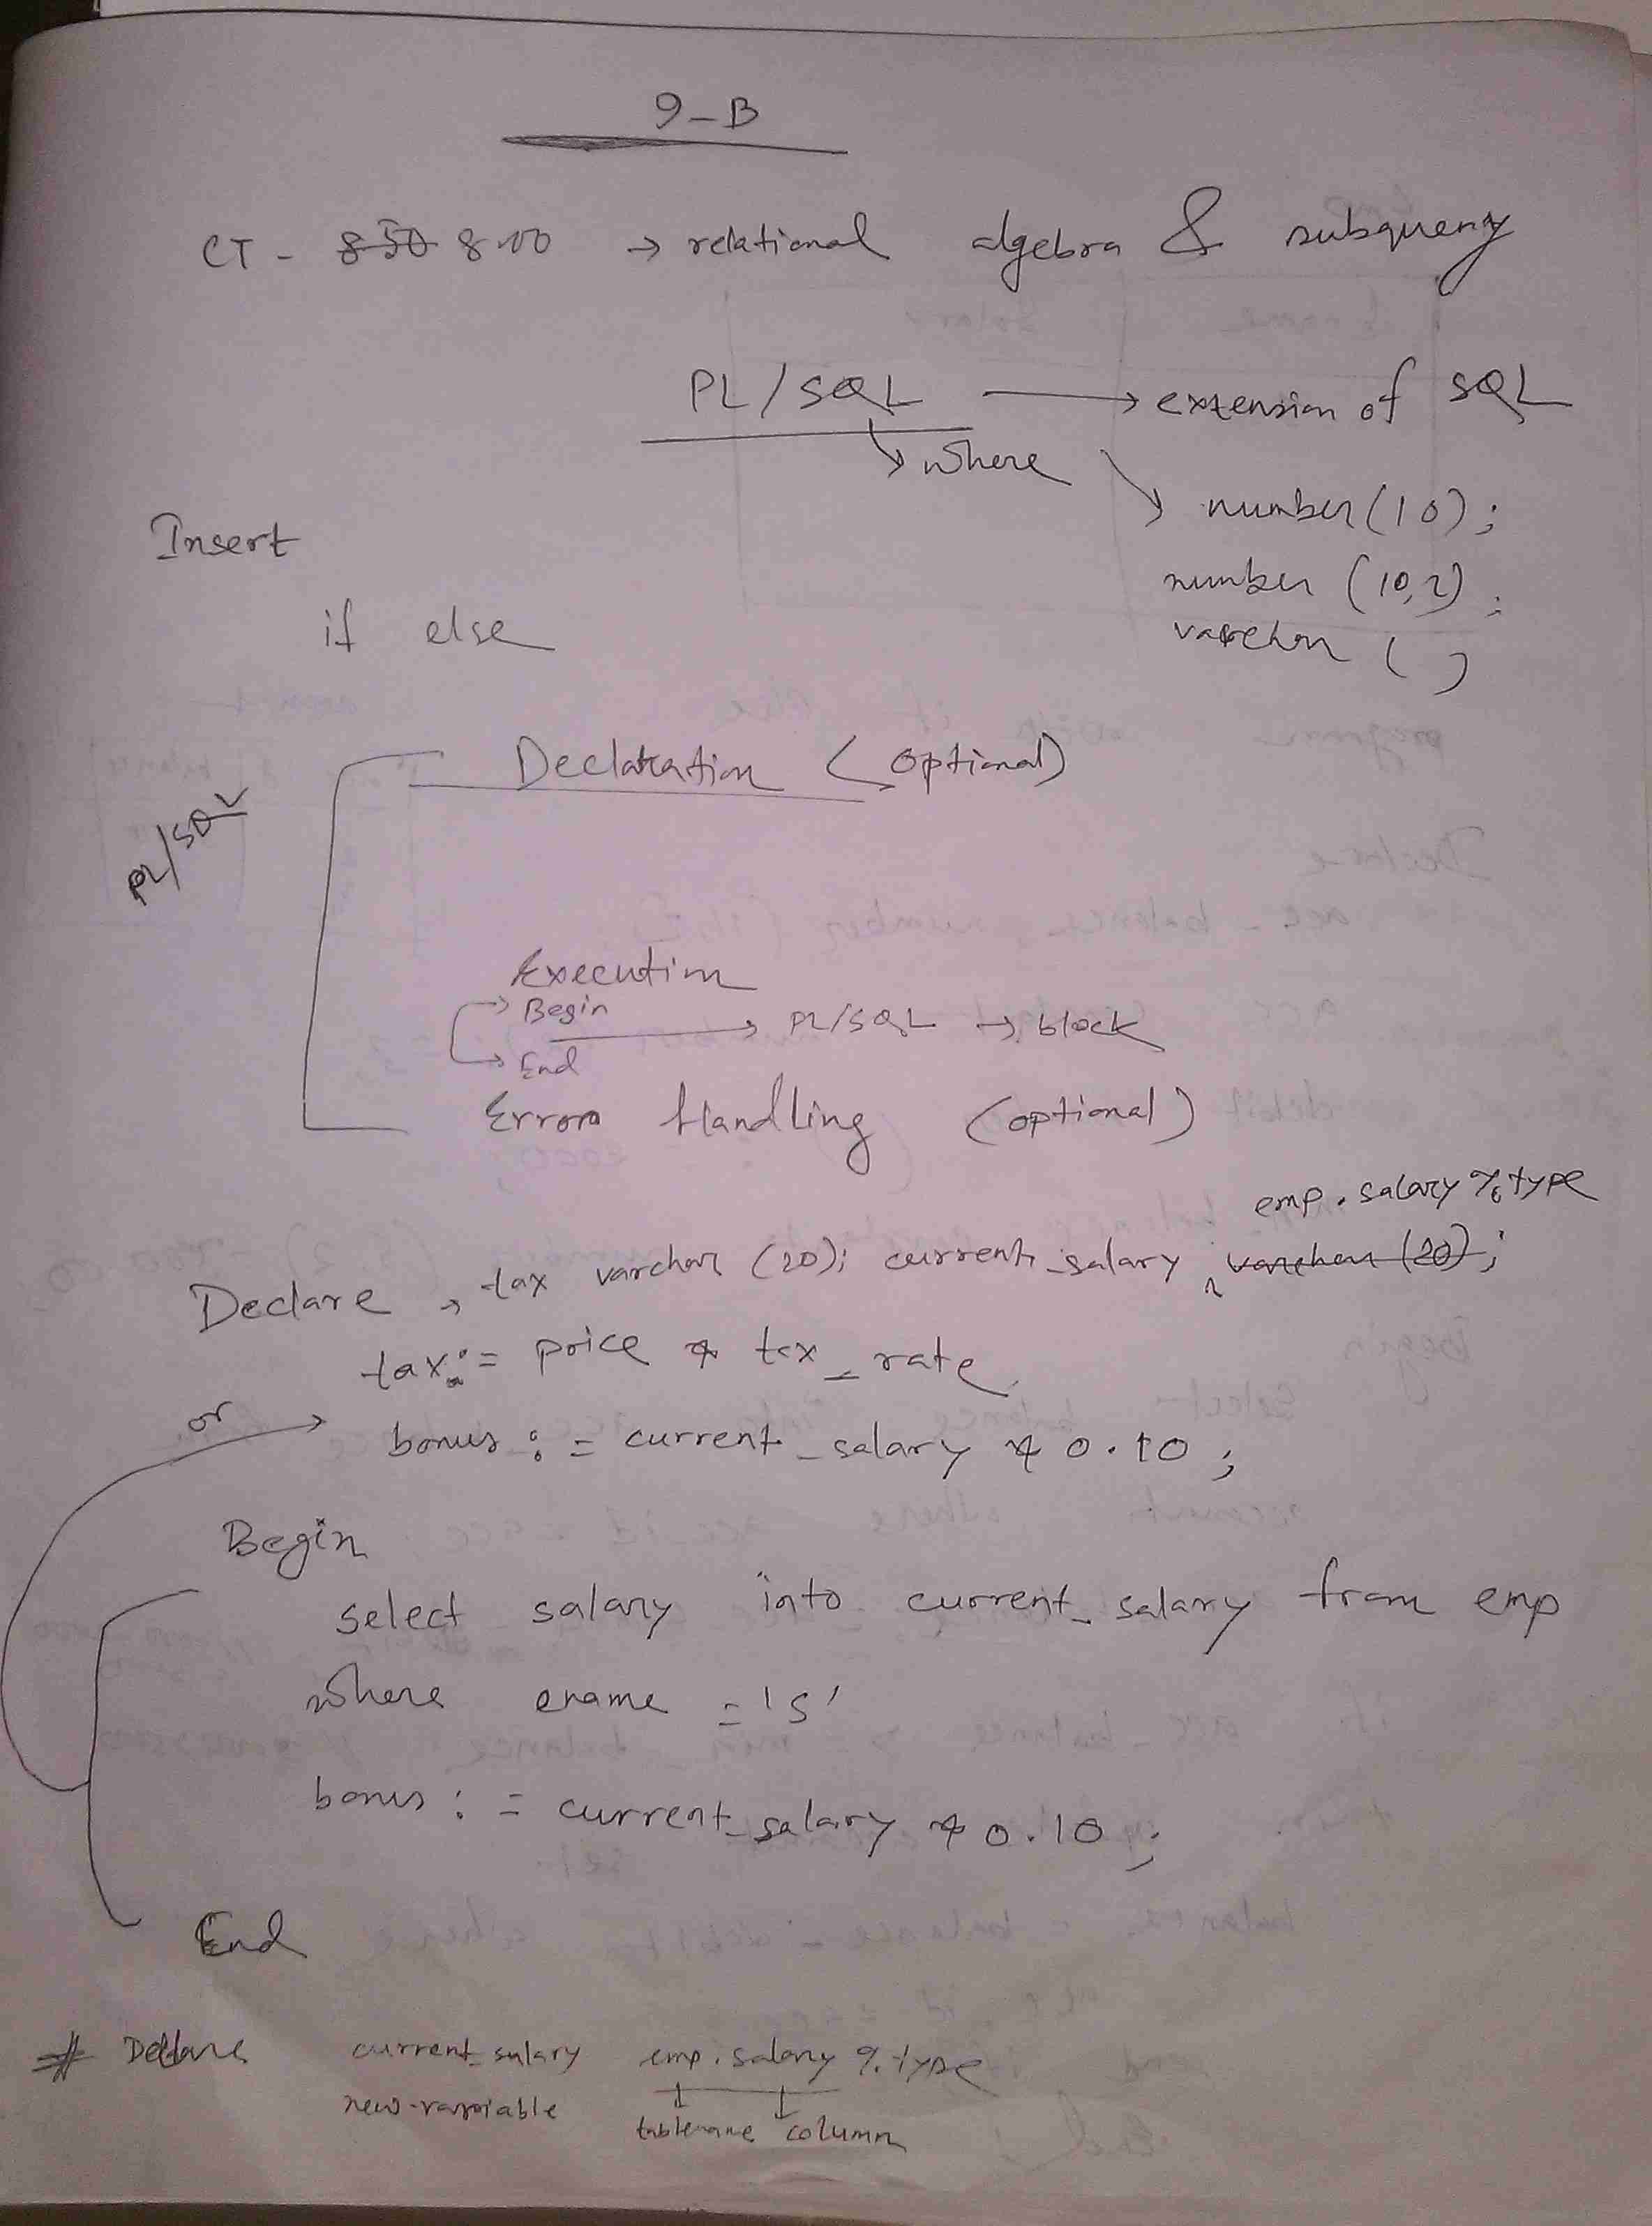 9-B
CT - 850 8.00 → relational algebra & subquery
PL/SQL → extension of SQL
↘ where ↘ number(10);
Insert
number (10,2);
if else
varchar ( )
Declaration (optional)
PL/SQL
Execution
→ Begin
→ PL/SQL → block
→ End
Error Handling (optional)
emp.salary %type
Declare → tax varchar (20); current_salary varchar (20);
tax := price * tax_rate
or → bonus := current_salary * 0.10;
Begin
select salary into current_salary from emp
where ename = 's'
bonus := current_salary * 0.10;
End
# Declare current_salary emp.salary %type
new-variable tablename column